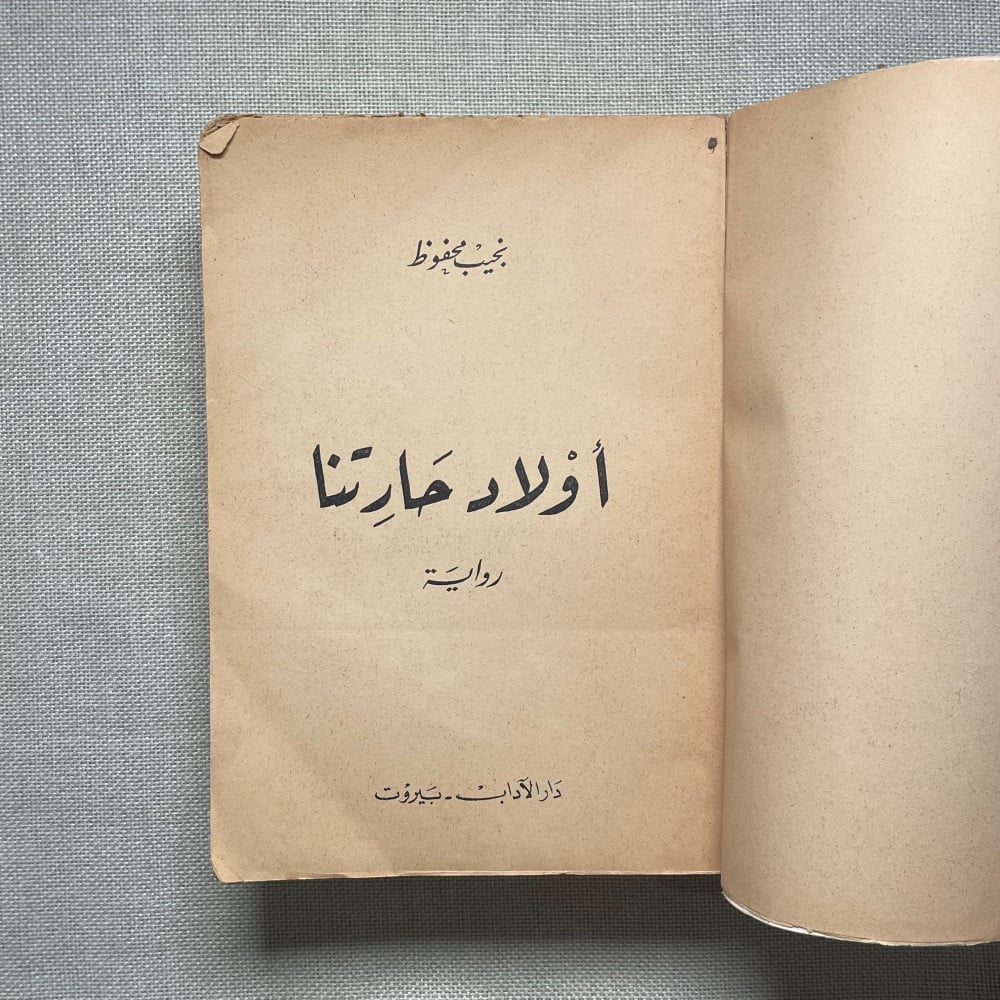 نجيب محفوظ
أوْلاد حَارِتنا
روايَة
دَار الآدابْ - بَيرْوت